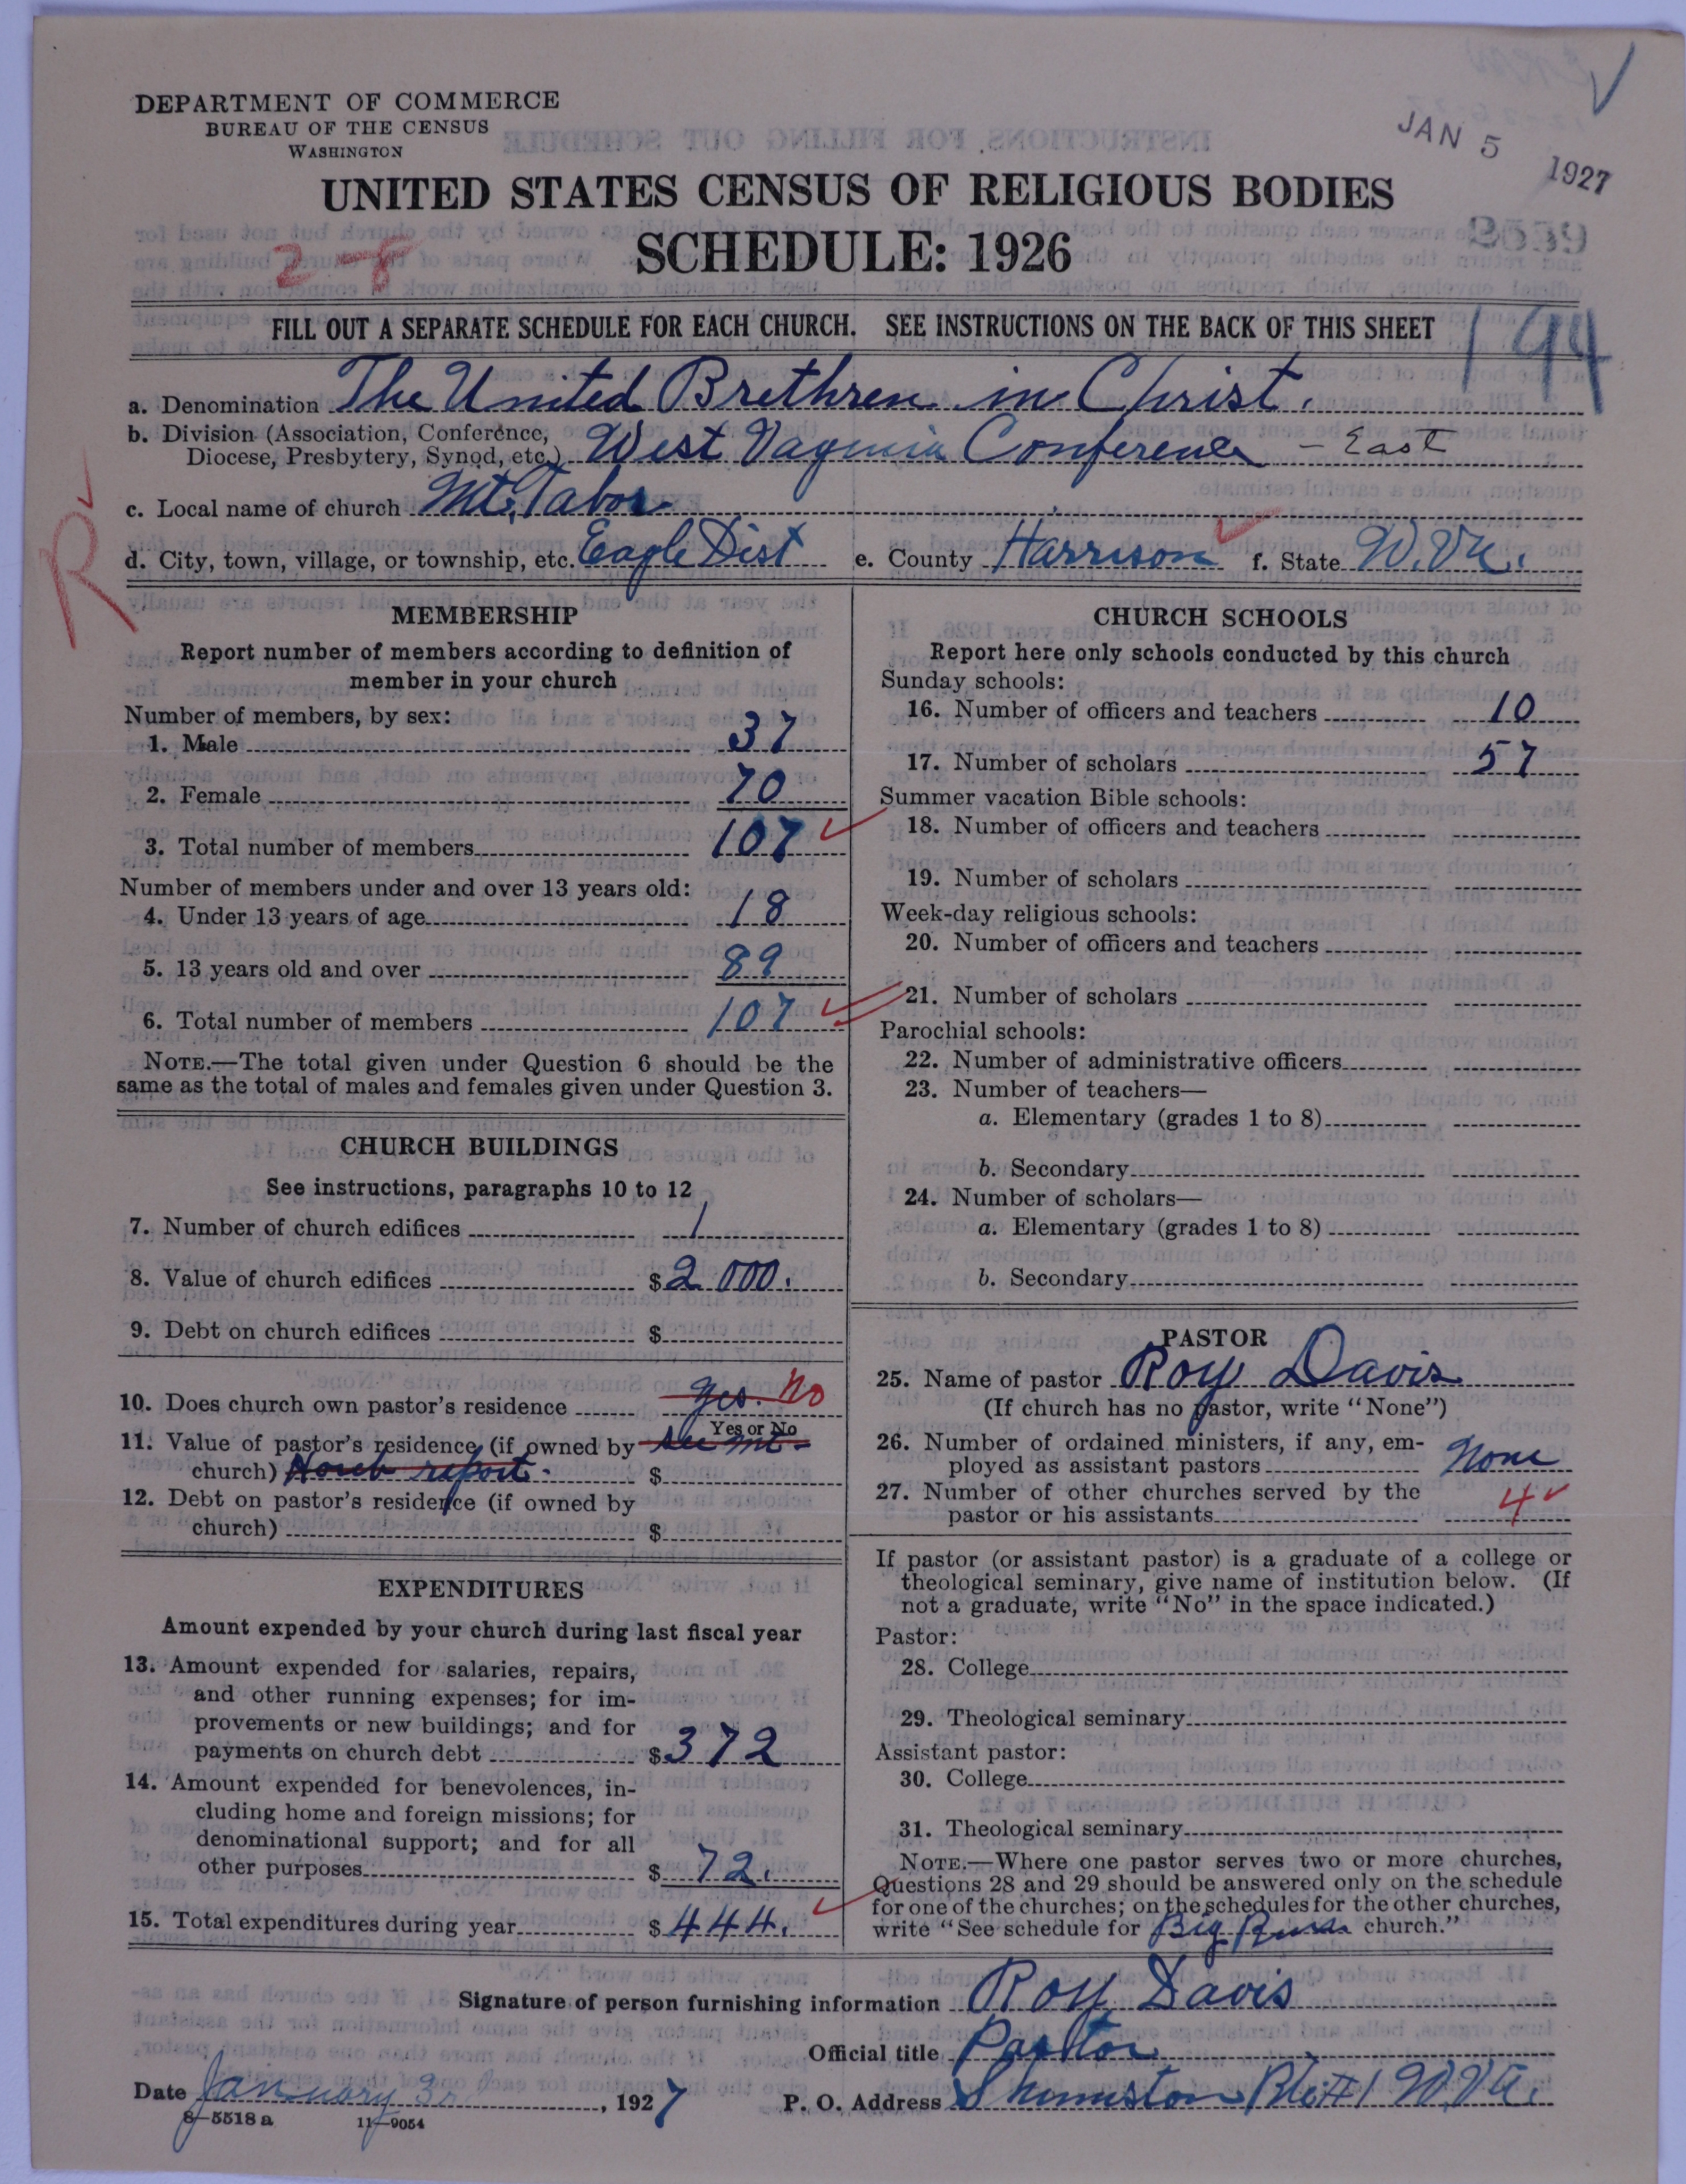 DEPARTMENT OF COMMERCE
BUREAU OF THE CENSUS
WASHINGTON
JAN 5 1927
UNITED STATES CENSUS OF RELIGIOUS BODIES
SCHEDULE: 1926
2-8
FILL OUT A SEPARATE SCHEDULE FOR EACH CHURCH. SEE INSTRUCTIONS ON THE BACK OF THIS SHEET
194
a. Denomination The United Brethren in Christ.
b. Division (Association, Conference,
Diocese, Presbytery, Synod, etc.) West Virginia Conference - East
c. Local name of church Mt. Tabor
d. City, town, village, or township, etc. Eagle Dist e. County Harrison f. State W. Va.
R
MEMBERSHIP
Report number of members according to definition of
member in your church
Number of members, by sex:
1. Male 37
2. Female 70
3. Total number of members 107
Number of members under and over 13 years old:
4. Under 13 years of age 18
5. 13 years old and over 89
6. Total number of members 107
NOTE.—The total given under Question 6 should be the
same as the total of males and females given under Question 3.
CHURCH BUILDINGS
See instructions, paragraphs 10 to 12
7. Number of church edifices 1
8. Value of church edifices $2 000.
9. Debt on church edifices $
10. Does church own pastor's residence yes. No
Yes or No
11. Value of pastor's residence (if owned by see Mt-
church) Horeb report. $
12. Debt on pastor's residence (if owned by
church) $
EXPENDITURES
Amount expended by your church during last fiscal year
13. Amount expended for salaries, repairs,
and other running expenses; for im-
provements or new buildings; and for
payments on church debt $372
14. Amount expended for benevolences, in-
cluding home and foreign missions; for
denominational support; and for all
other purposes $ 72.
15. Total expenditures during year $444.
CHURCH SCHOOLS
Report here only schools conducted by this church
Sunday schools:
16. Number of officers and teachers 10
17. Number of scholars 57
Summer vacation Bible schools:
18. Number of officers and teachers
19. Number of scholars
Week-day religious schools:
20. Number of officers and teachers
21. Number of scholars
Parochial schools:
22. Number of administrative officers
23. Number of teachers—
a. Elementary (grades 1 to 8)
b. Secondary
24. Number of scholars—
a. Elementary (grades 1 to 8)
b. Secondary
PASTOR
25. Name of pastor Roy Davis
(If church has no pastor, write "None")
26. Number of ordained ministers, if any, em-
ployed as assistant pastors None
27. Number of other churches served by the
pastor or his assistants 4
If pastor (or assistant pastor) is a graduate of a college or
theological seminary, give name of institution below. (If
not a graduate, write "No" in the space indicated.)
Pastor:
28. College
29. Theological seminary
Assistant pastor:
30. College
31. Theological seminary
NOTE.—Where one pastor serves two or more churches,
Questions 28 and 29 should be answered only on the schedule
for one of the churches; on the schedules for the other churches,
write "See schedule for Big Run church."
Signature of person furnishing information Roy Davis
Official title Pastor
Date January 3rd, 1927 P. O. Address Shinnston #1 W. Va.
8-5518a 11-9054